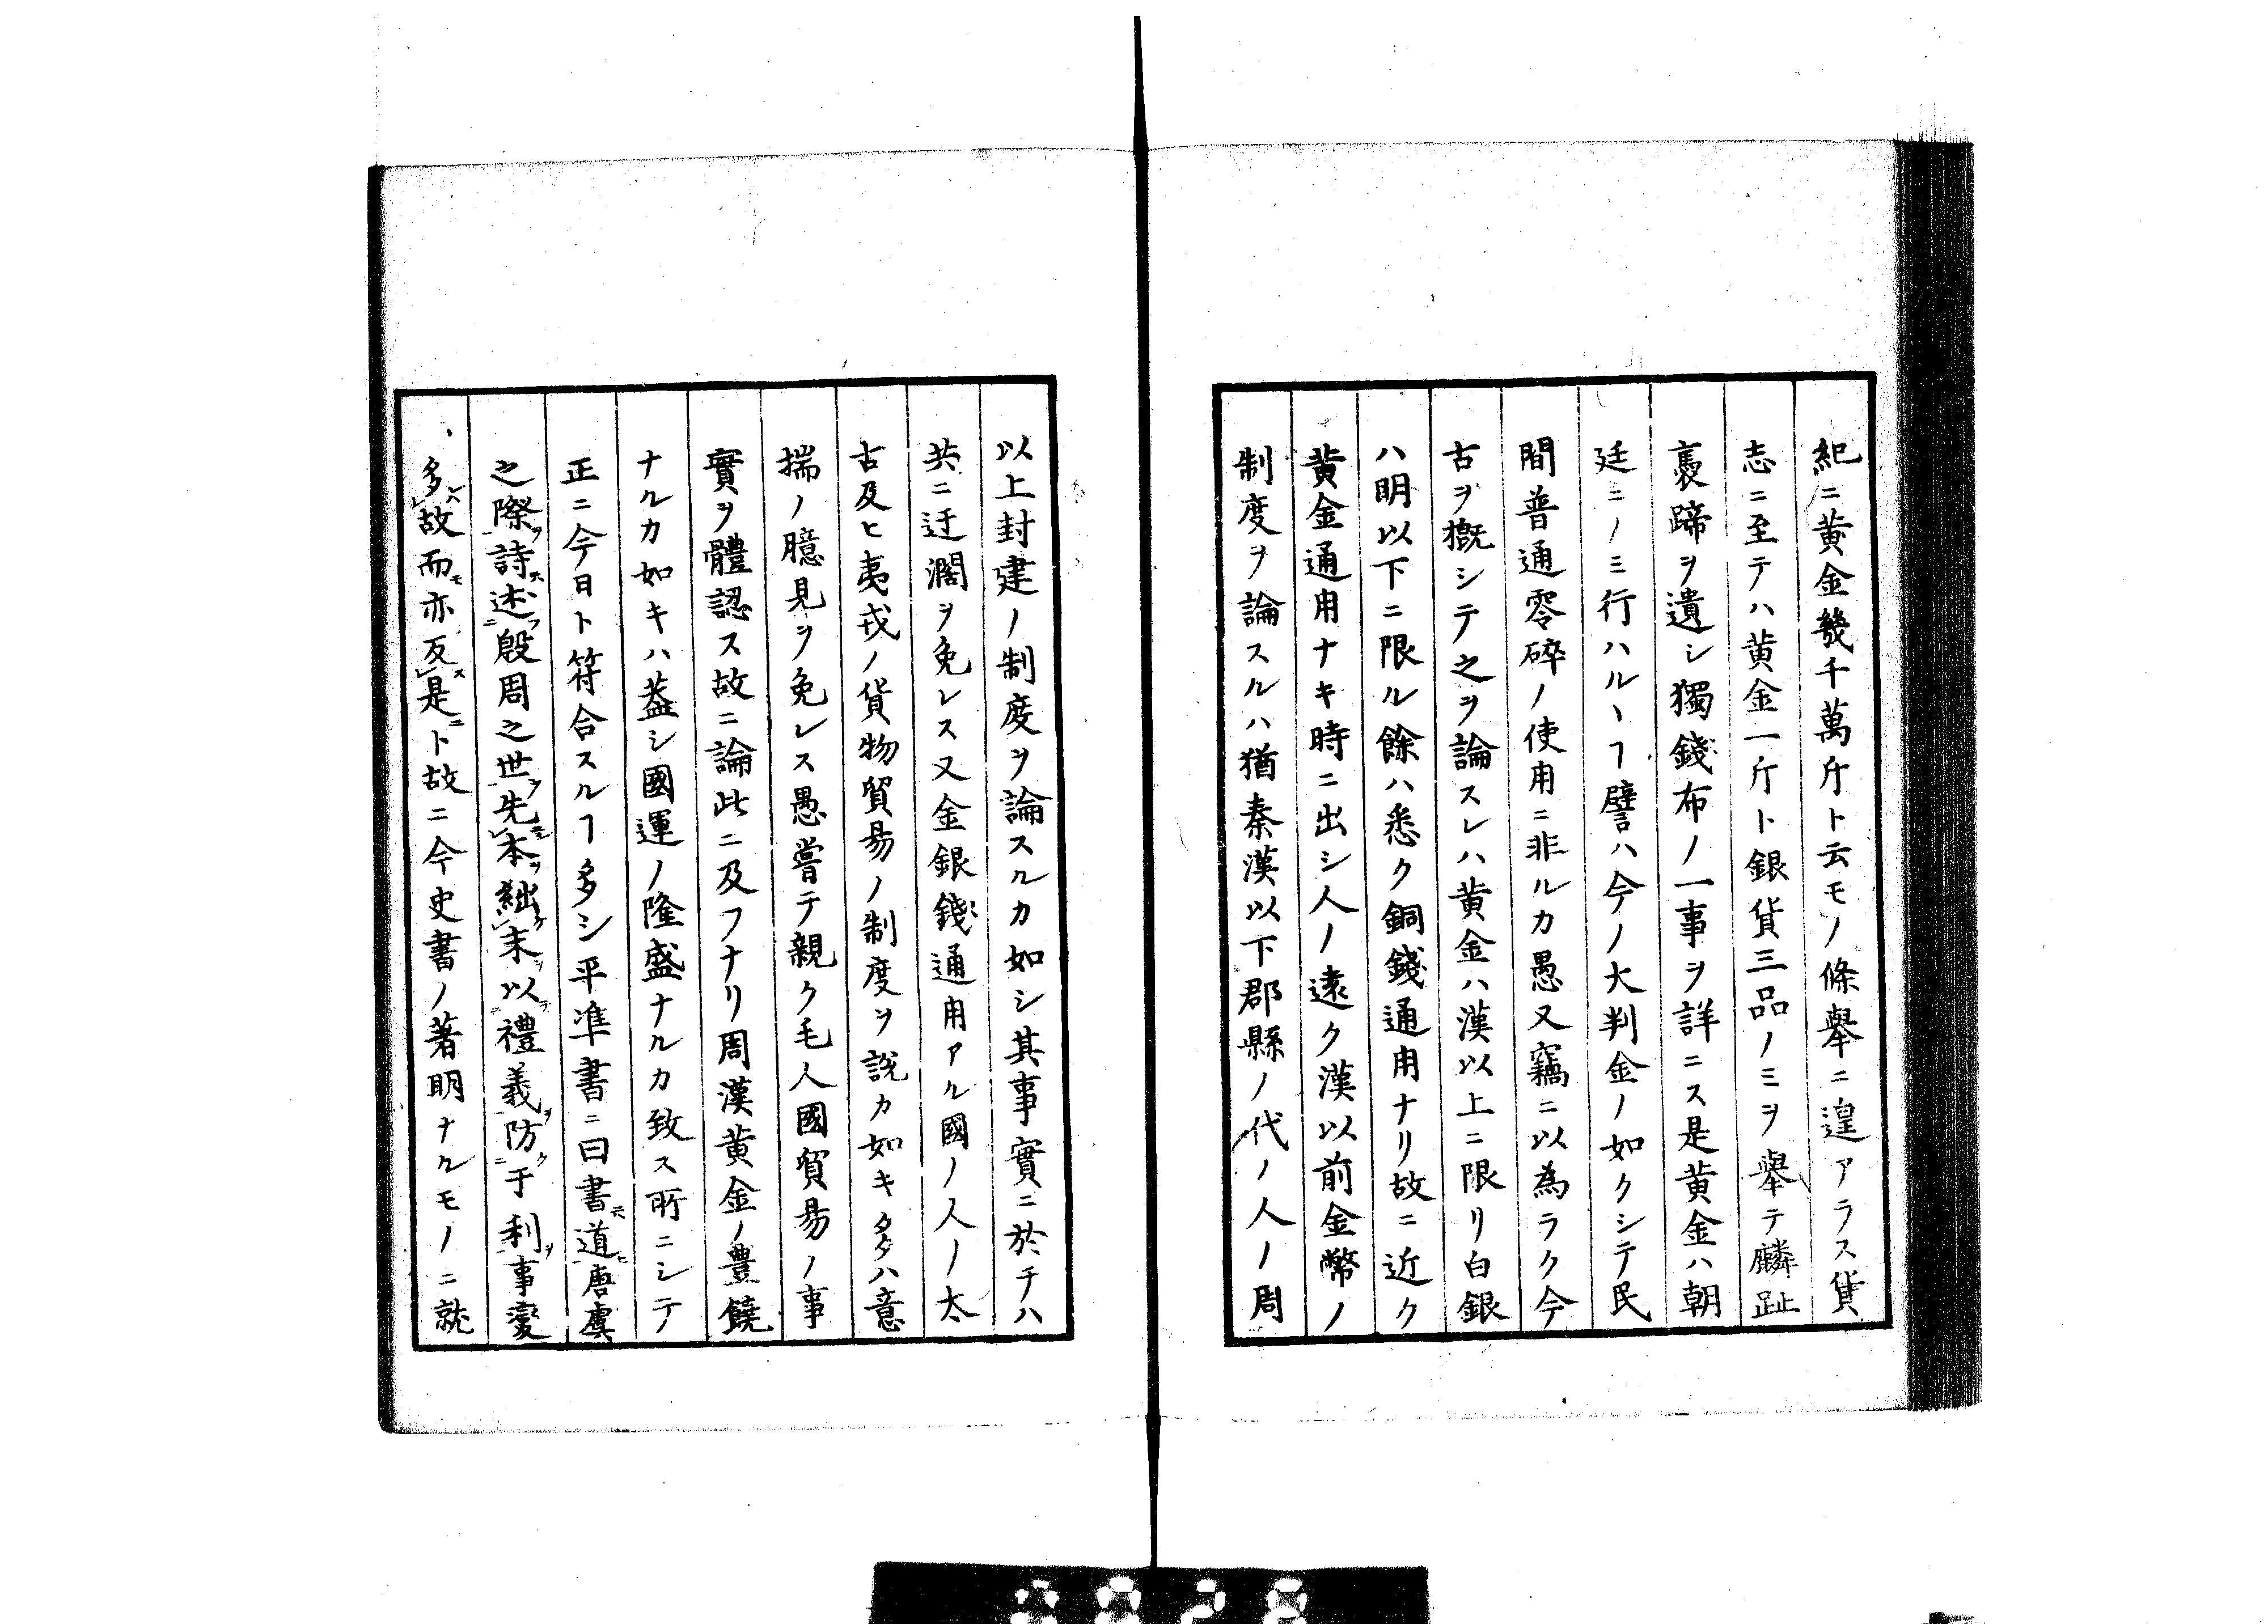 紀ニ黄金幾千萬斤ト云モノ條舉ニ遑アラス貨
志ニ至テハ黄金一斤ト銀貨三品ノミヲ舉テ麟趾
褭蹄ヲ遺シ獨錢布ノ一事ヲ詳ニス是黄金ハ朝
廷ニノミ行ハルヽヿ譬ハ今ノ大判金ノ如クシテ民
間普通零碎ノ使用ニ非ルカ愚又竊ニ以為ラク今
古ヲ概シテ之ヲ論スレハ黄金ハ漢以上ニ限リ白銀
ハ明以下ニ限ル餘ハ悉ク銅錢通用ナリ故ニ近ク
黄金通用ナキ時ニ出シ人ノ遠ク漢以前金幣ノ
制度ヲ論スルハ猶秦漢以下郡縣ノ代ノ人ノ周
以上封建ノ制度ヲ論スルカ如シ其事實ニ於テハ
共ニ迂濶ヲ免レス又金銀錢通用アル國ノ人ノ太
古及ヒ夷戎ノ貨物貿易ノ制度ヲ説カ如キ多ハ意
揣ノ臆見ヲ免レス愚嘗テ親ク毛人國貿易ノ事
實ヲ體認ス故ニ論此ニ及フナリ周漢黄金ノ豊饒
ナルカ如キハ葢シ國運ノ隆盛ナルカ致ス所ニシテ
正ニ今日ト符合スルヿ多シ平準書ニ曰書ニ道唐虞
之際詩述殷周之世先本絀末以禮義防于利事變
多故而亦反是ト故ニ今史書ノ著明ナルモノニ就